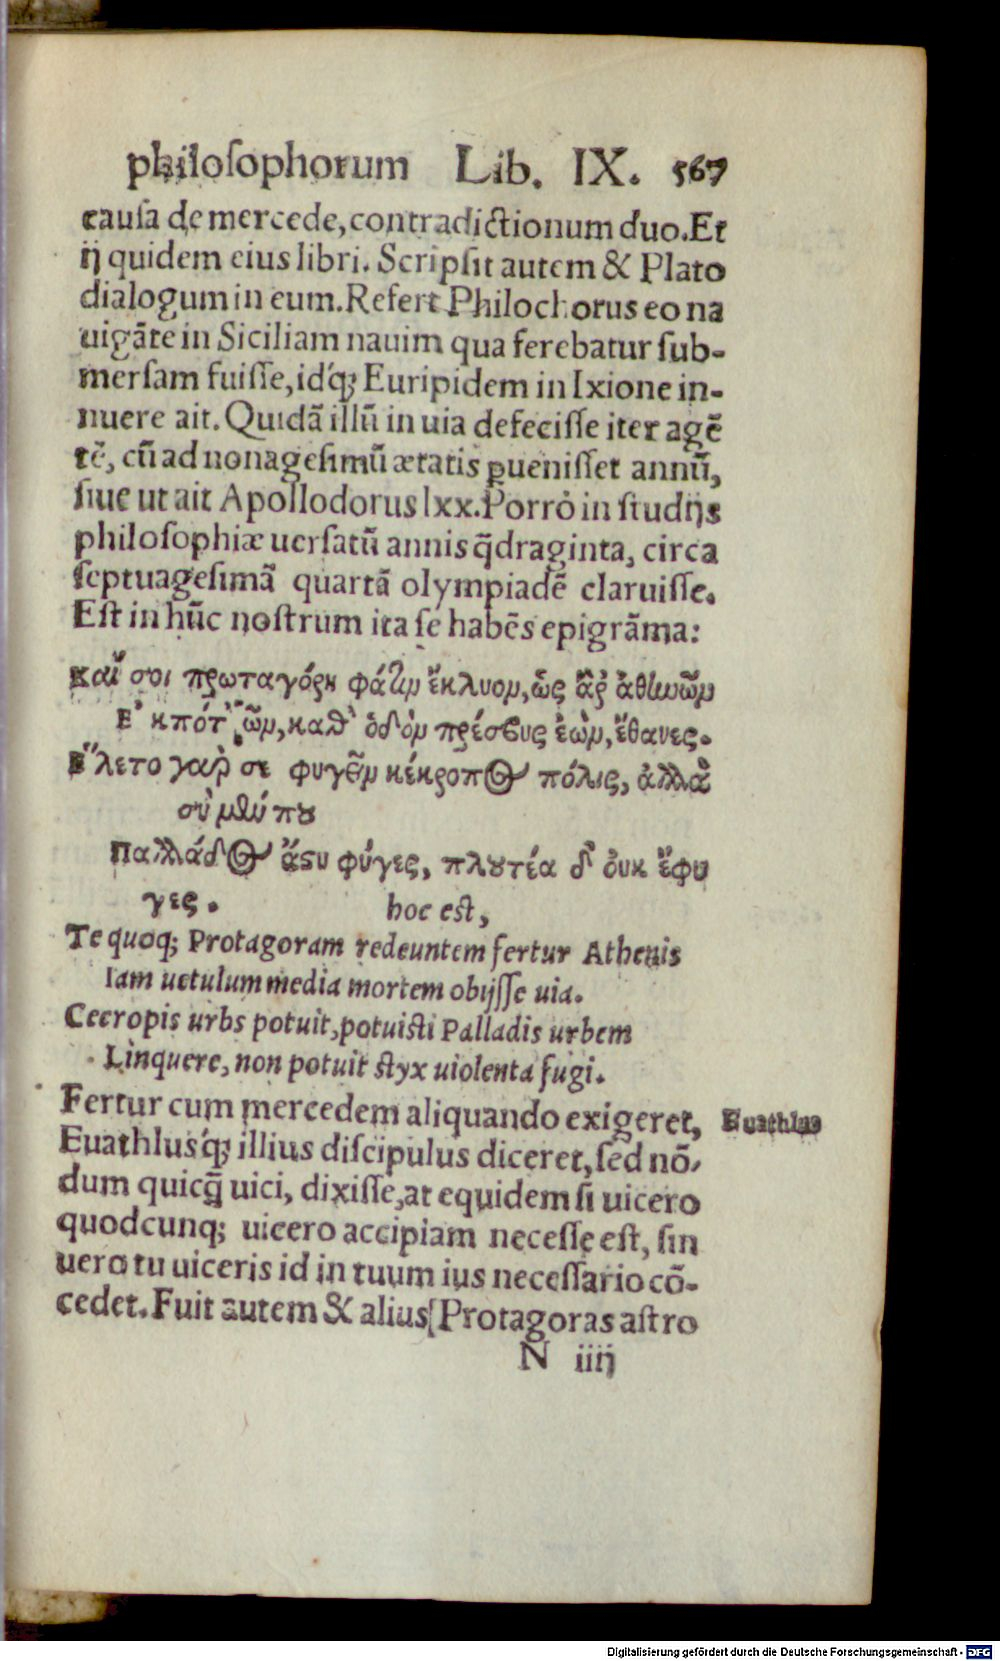 philoſophorum Lib. IX. 567
cauſa de mercede, contradictionum duo. Et
ij quidem eius libri. Scripſit autem & Plato
dialogum in eum. Refert Philochorus eo na
uigãte in Siciliam nauim qua ferebatur ſub-
merſam fuiſſe, idq́; Euripidem in Ixione in-
nuere ait. Quidã illũ in uia defeciſſe iter agẽ
tẽ, cũ ad nonageſimũ ætatis ꝑueniſſet annũ,
ſiue ut ait Apollodorus lxx. Porrò in ſtudijs
philoſophiæ uerſatũ annis q̃draginta, circa
ſeptuageſimã quartã olympiadẽ claruiſſe.
Eſt in hũc noſtrum ita ſe habẽs epigrãma:
Καὶ σοι πρωταγόρη φάτιν ἔκλυον, ὡς ἄρ ἀθηνῶν
Ε᾽ κπότ᾽ ὢν, καθ᾽ ὁδὸν πρέσβυς ἐὼν, ἔθανες.
Ε῞λετο γαρ σε φυγεῖν κέκροπος πόλις, ἀλλὰ
σὺ μὲν που
Παλλάδος ἄστυ φύγες, πλουτέα δ᾽ οὐκ ἔφυ
γες. hoc eſt,
Te quoq; Protagoram redeuntem fertur Athenis
Iam uetulum media mortem obijſſe uia.
Cecropis urbs potuit, potuiſti Palladis urbem
Linquere, non potuit ſtyx uiolenta fugi.
Fertur cum mercedem aliquando exigeret, Euathlus
Euathlusq́; illius diſcipulus diceret, ſed nõ-
dum quicq̃ uici, dixiſſe, at equidem ſi uicero
quodcunq; uicero accipiam neceſſe eſt, ſin
uero tu uiceris id in tuum ius neceſſario cõ-
cedet. Fuit autem & alius [Protagoras aſtro
N iiij
Digitalisierung gefördert durch die Deutsche Forschungsgemeinschaft - DFG